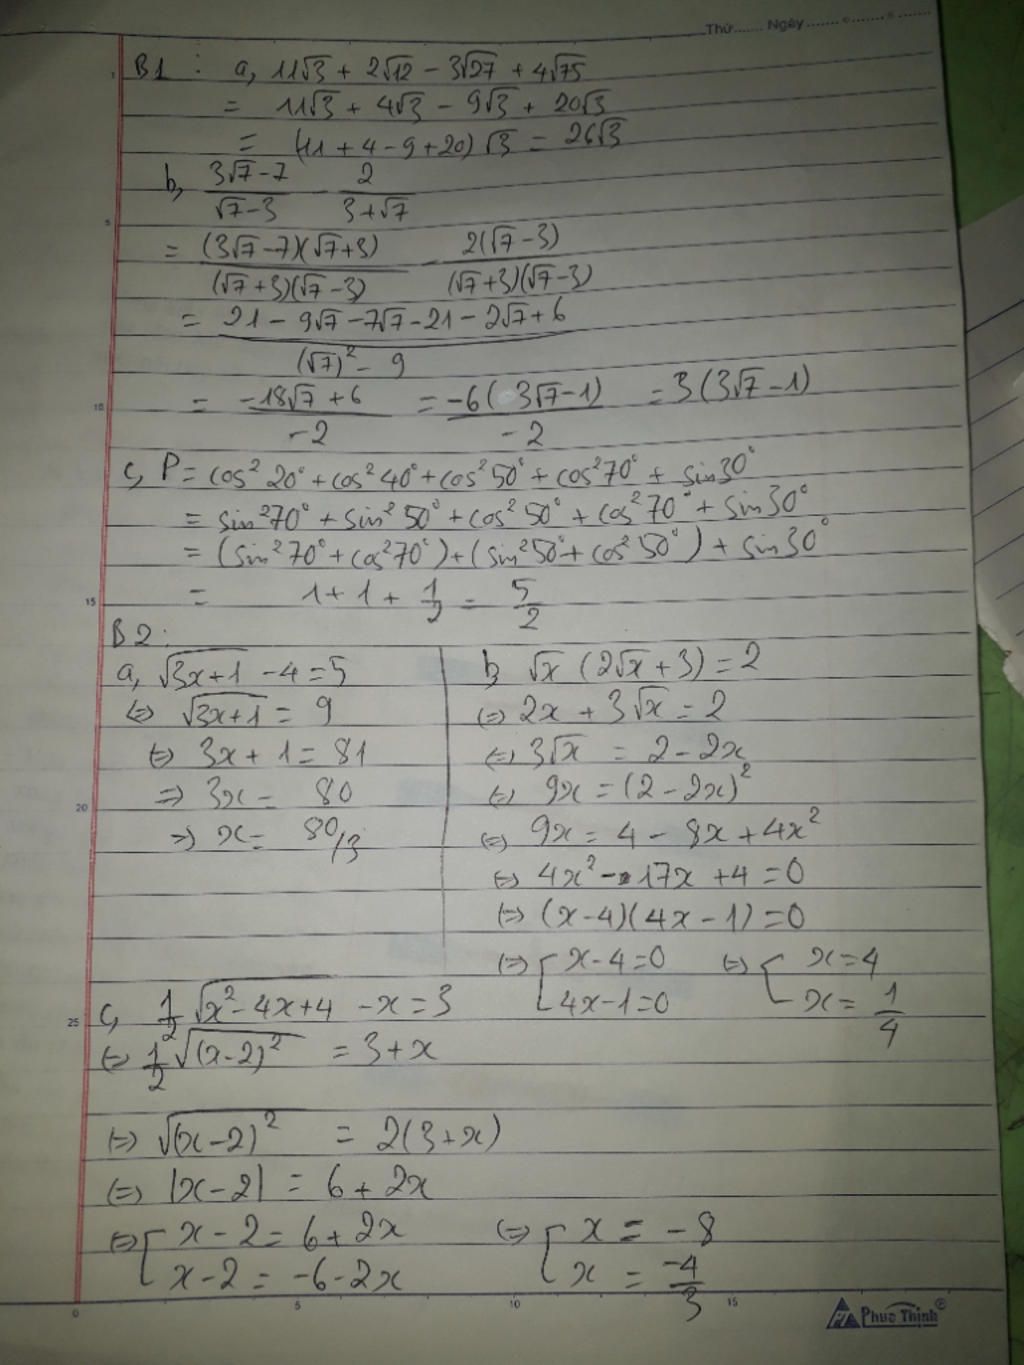 Thứ....... Ngày ........ ........ ........
B1 : a, 11√3 + 2√12 - 3√27 + 4√75
= 11√3 + 4√3 - 9√3 + 20√3
= (11 + 4 - 9 + 20) √3 = 26√3
b, (3√7 - 7)/(√7 - 3) - 2/(3 + √7)
= (3√7 - 7)(√7 + 3)/(√7 + 3)(√7 - 3) - 2(√7 - 3)/(√7 + 3)(√7 - 3)
= (21 - 9√7 - 7√7 - 21 - 2√7 + 6)/((√7)² - 9)
= (-18√7 + 6)/-2 = -6(3√7 - 1)/-2 = 3(3√7 - 1)
c, P = cos² 20° + cos² 40° + cos² 50° + cos² 70° + sin 30°
= sin² 70° + sin² 50° + cos² 50° + cos² 70° + sin 30°
= (sin² 70° + cos² 70°) + (sin² 50° + cos² 50°) + sin 30°
= 1 + 1 + 1/2 = 5/2
B2 :
a, √(3x + 1) - 4 = 5
⇔ √(3x + 1) = 9
⇔ 3x + 1 = 81
⇒ 3x = 80
⇒ x = 80/3
b, √x (2√x + 3) = 2
⇔ 2x + 3√x = 2
⇔ 3√x = 2 - 2x
⇔ 9x = (2 - 2x)²
⇔ 9x = 4 - 8x + 4x²
⇔ 4x² - 17x + 4 = 0
⇔ (x - 4)(4x - 1) = 0
⇔ [ x - 4 = 0 ⇔ [ x = 4
4x - 1 = 0 x = 1/4
c, 1/2 √(x² - 4x + 4) - x = 3
⇔ 1/2 √((x - 2)²) = 3 + x
⇔ √((x - 2)²) = 2(3 + x)
⇔ |x - 2| = 6 + 2x
⇔ [ x - 2 = 6 + 2x ⇔ [ x = -8
x - 2 = -6 - 2x x = -4/3
5
10
15
20
25
0 5 10 15
Phuc Thịnh